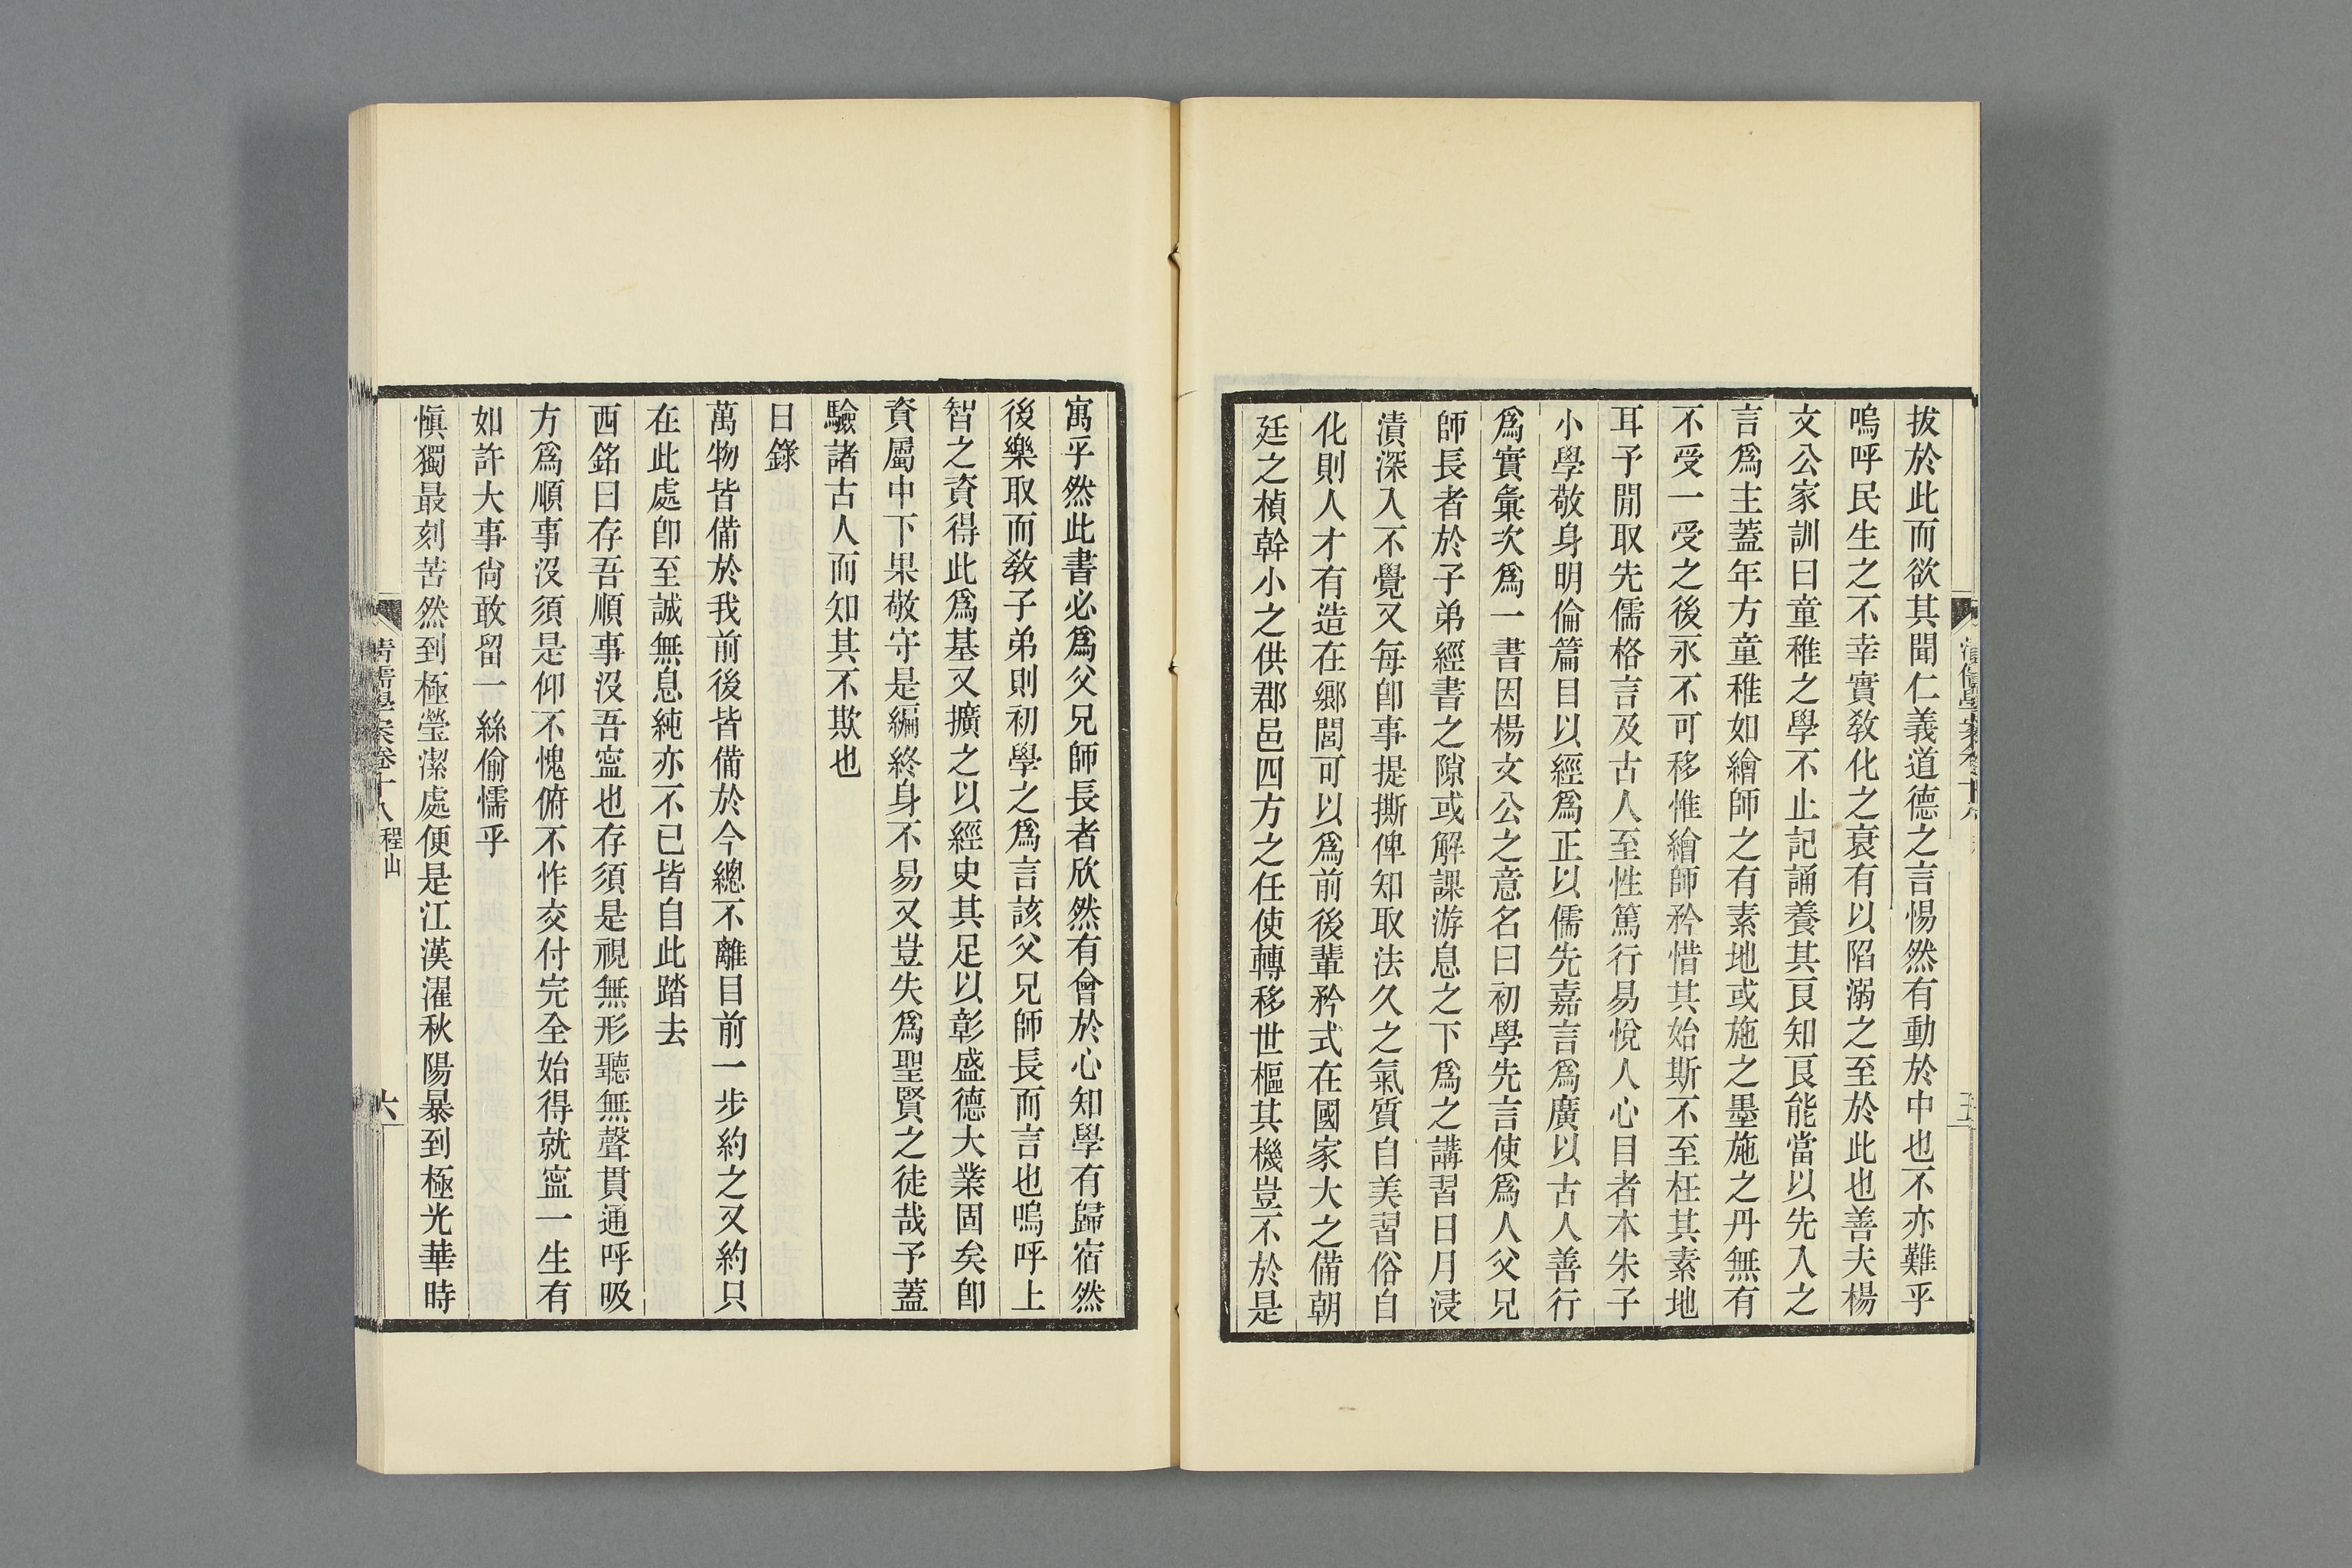 拔於此而欲其聞仁義道德之言惕然有動於中也不亦難乎
嗚呼民生之不幸實敎化之衰有以陷溺之至於此也善夫楊
文公家訓曰童稚之學不止記誦養其良知良能當以先入之
言爲主蓋年方童稚如繪師之有素地或施之墨施之丹無有
不受一受之後永不可移惟繪師矜惜其始斯不至枉其素地
耳予閒取先儒格言及古人至性篤行易悅人心目者本朱子
小學敬身明倫篇目以經爲正以儒先嘉言爲廣以古人善行
爲實彙次爲一書因楊文公之意名曰初學先言使爲人父兄
師長者於子弟經書之隙或解課游息之下爲之講習日月浸
漬深入不覺又每卽事提撕俾知取法久之氣質自美習俗自
化則人才有造在鄉閭可以爲前後輩矜式在國家大之備朝
廷之楨幹小之供郡邑四方之任使轉移世樞其機豈不於是
寓乎然此書必爲父兄師長者欣然有會於心知學有歸宿然
後樂取而敎子弟則初學之爲言該父兄師長而言也嗚呼上
智之資得此爲基又擴之以經史其足以彰盛德大業固矣卽
資屬中下果敬守是編終身不易又豈失爲聖賢之徒哉予蓋
驗諸古人而知其不欺也
日錄
萬物皆備於我前後皆備於今總不離目前一步約之又約只
在此處卽至誠無息純亦不已皆自此踏去
西銘曰存吾順事沒吾寍也存須是視無形聽無聲貫通呼吸
方爲順事沒須是仰不愧俯不怍交付完全始得就寍一生有
如許大事尙敢留一絲偷懦乎
愼獨最刻苦然到極瑩潔處便是江漢濯秋陽暴到極光華時
清儒學案卷十八 程山
六